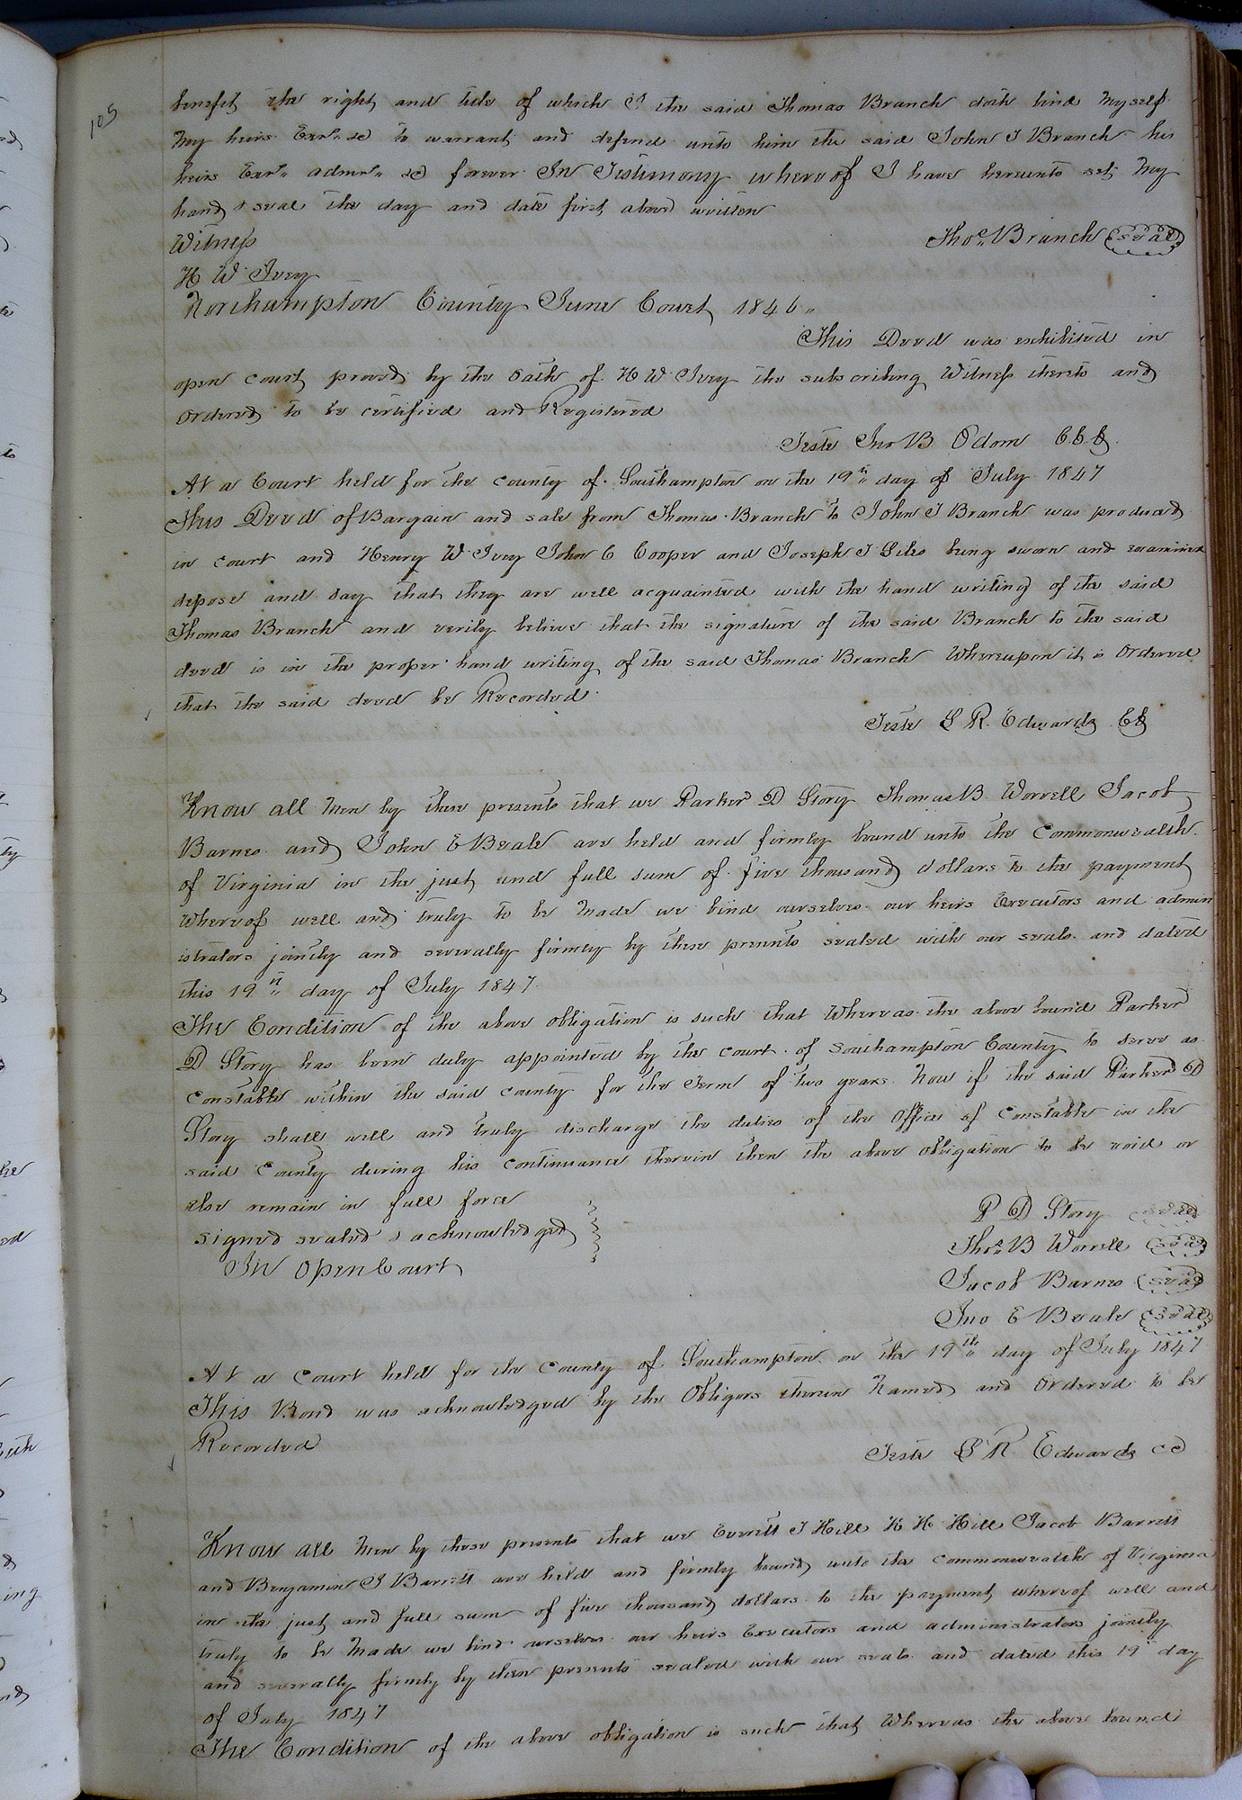 105
benefit the right and title of which I the said Thomas Branch doth bind myself
my heirs Exrs &c to warrant and defend unto him the said John J Branch his
heirs Exrs admrs &c forever In Testimony whereof I have hereunto set my
hand & seal the day and date first above written
Witness
Thos Branch seal
H W Ivey
Northampton County June Court 1846
This Deed was exhibited in
open court proved by the Oath of H W Ivey the subscribing Witness thereto and
Ordered to be certified and Registered
Teste Jno B Odom
At a Court held for the county of Southampton on the 19th day of July 1847
This Deed of Bargain and sale from Thomas Branch to John J Branch was produced
in court and Henry W Ivey John C Cooper and Joseph J being sworn and examined
depose and say that they are well acquainted with the hand writing of the said
Thomas Branch and verily believe that the signature of the said Branch to the said
deed is in the proper hand writing of the said Thomas Branch Whereupon it is Ordered
that the said deed be Recorded
Teste L R Edwards
Know all Men by these presents that we Parker D Story Thomas B Worrell Jacob
Barnes and John E Beale are held and firmly bound unto the Commonwealth
of Virginia in the just and full sum of five thousand dollars to the payment
whereof well and truly to be Made we bind ourselves our heirs Executors and admin
istrators jointly and severally firmly by these presents sealed with our seals and dated
this 19th day of July 1847
The Condition of the above obligation is such that Whereas the above bound Parker
D Story has been duly appointed by the court of Southampton County to serve as
constable within the said county for the Term of two years Now if the said Parker D
Story shall well and truly discharge the duties of the Office of Constable in the
said County during his continuance therein then the above Obligation to be void or
else remain in full force
P D Story seal
signed sealed & acknowledged
Thos B Worrell seal
In Open Court
Jacob Barnes seal
Jno E Beale seal
At a Court held for the County of Southampton on the 19th day of July 1847
This Bond was acknowledged by the Obligors therein Named and Ordered to be
Recorded
Teste L R Edwards CC
Know all Men by these presents that we Everitt J Hill H H Hill Jacob Barrett
and Benjamin J Barrett are held and firmly bound unto the commonwealth of Virginia
in the just and full sum of five thousand dollars to the payment whereof well and
truly to be Made we bind ourselves our heirs Executors and administrators jointly
and severally firmly by these presents sealed with our seals and dated this 19 day
of July 1847
The Condition of the above obligation is such that Whereas the above bound